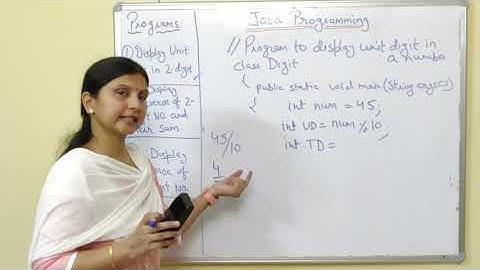 Programs
① Display Unit
in 2 digit
Display
of 2-
No. and
Sum
Display
of
No.
45/10
4
Java Programming
// Program to display unit digit in
a number
class Digit
{ public static void main(String args[])
{ int num = 45;
int UD = num % 10;
int TD =